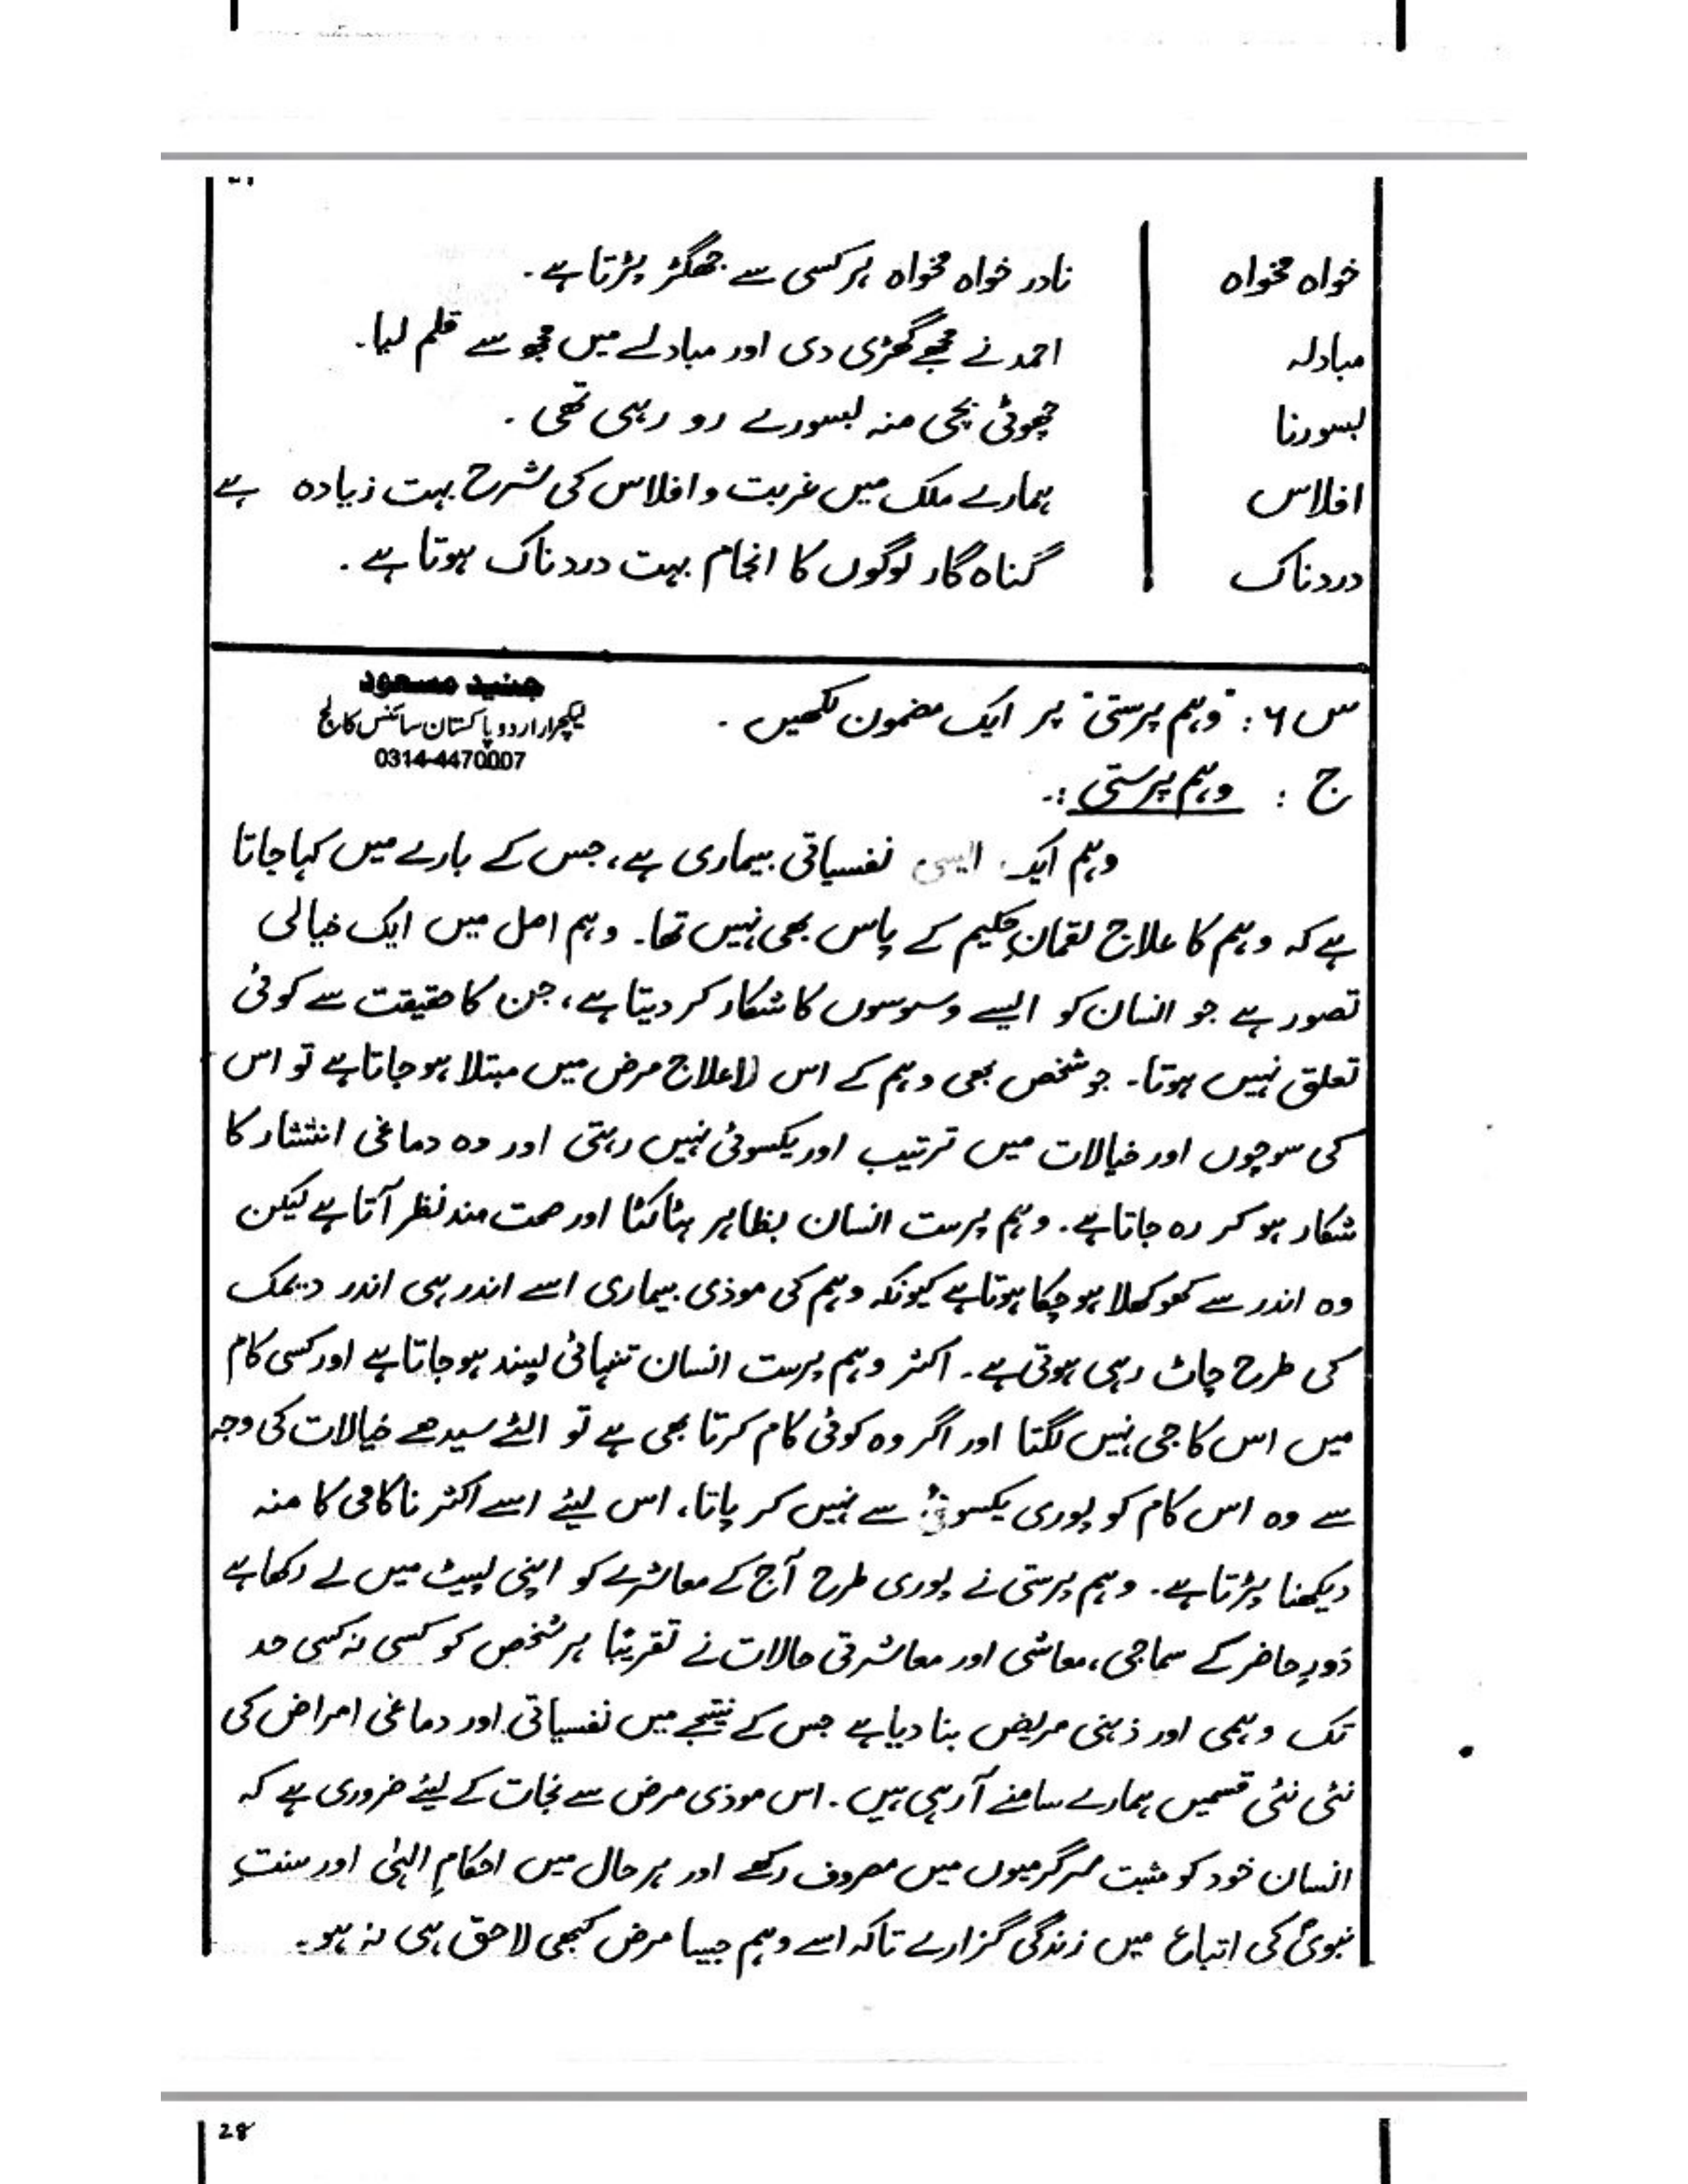 خواہ مخواہ | نادر خواہ مخواہ ہر کسی سے جھگڑ پڑتا ہے۔
مبادلہ | احمد نے مجھے گھڑی دی اور مبادلے میں مجھ سے قلم لیا۔
بسورنا | چھوٹی بچی منہ بسورے رو رہی تھی۔
افلاس | ہمارے ملک میں غربت و افلاس کی شرح بہت زیادہ ہے
دردناک | گناہ گار لوگوں کا انجام بہت دردناک ہوتا ہے۔
جنید مسعود
لیکچرار اردو پاکستان سائنس کالج
0314-4470007
س ۶: "وہم پرستی" پر ایک مضمون لکھیں۔
ج: وہم پرستی:۔
وہم ایک ایسی نفسیاتی بیماری ہے، جس کے بارے میں کہا جاتا
ہے کہ وہم کا علاج لقمان حکیم کے پاس بھی نہیں تھا۔ وہم اصل میں ایک خیالی
تصور ہے جو انسان کو ایسے وسوسوں کا شکار کر دیتا ہے، جن کا حقیقت سے کوئی
تعلق نہیں ہوتا۔ جو شخص بھی وہم کے اس لاعلاج مرض میں مبتلا ہو جاتا ہے تو اس
کی سوچوں اور خیالات میں ترتیب اور یکسوئی نہیں رہتی اور وہ دماغی انتشار کا
شکار ہو کر رہ جاتا ہے۔ وہم پرست انسان بظاہر ہٹا کٹا اور صحت مند نظر آتا ہے لیکن
وہ اندر سے کھوکھلا ہو چکا ہوتا ہے کیونکہ وہم کی موذی بیماری اسے اندر ہی اندر دیمک
کی طرح چاٹ رہی ہوتی ہے۔ اکثر وہم پرست انسان تنہائی پسند ہو جاتا ہے اور کسی کام
میں اس کا جی نہیں لگتا اور اگر وہ کوئی کام کرتا بھی ہے تو الٹے سیدھے خیالات کی وجہ
سے وہ اس کام کو پوری یکسوئی سے نہیں کر پاتا، اس لیئے اسے اکثر ناکامی کا منہ
دیکھنا پڑتا ہے۔ وہم پرستی نے پوری طرح آج کے معاشرے کو اپنی لپیٹ میں لے رکھا ہے
دَورِ حاضر کے سماجی، معاشی اور معاشرتی حالات نے تقریبًا ہر شخص کو کسی نہ کسی حد
تک وہمی اور ذہنی مریض بنا دیا ہے جس کے نتیجے میں نفسیاتی اور دماغی امراض کی
نئی نئی قسمیں ہمارے سامنے آ رہی ہیں۔ اس موذی مرض سے نجات کے لیئے ضروری ہے کہ
انسان خود کو مثبت سرگرمیوں میں مصروف رکھے اور ہر حال میں احکامِ الہیٰ اور سنتِ
نبویؐ کی اتباع میں زندگی گزارے تاکہ اسے وہم جیسا مرض کبھی لاحق ہی نہ ہو۔
28